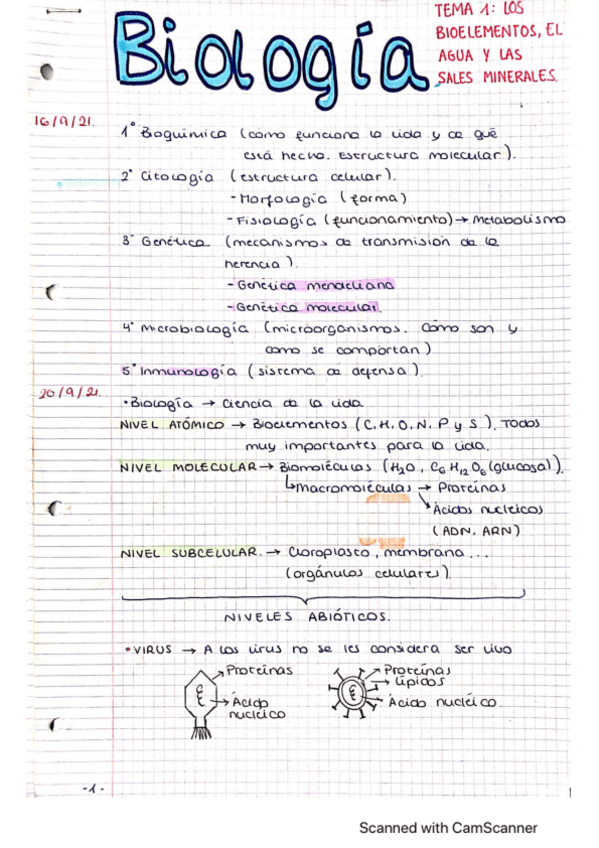 Biología
TEMA 1: LOS
BIOELEMENTOS, EL
AGUA Y LAS
SALES MINERALES.
16/9/21.
1° Bioquímica (cómo funciona la vida y de qué
está hecho. Estructura molecular).
2° Citología (estructura celular).
- Morfología (forma)
- Fisiología (funcionamiento) → Metabolismo
3° Genética (mecanismos de transmisión de la
herencia).
- Genética mendeliana
- Genética molecular.
4° Microbiología (microorganismos. Cómo son y
como se comportan)
5° Inmunología (sistema de defensa).
20/9/21.
• Biología → Ciencia de la vida.
NIVEL ATÓMICO → Bioelementos (C, H, O, N, P y S). Todos
muy importantes para la vida.
NIVEL MOLECULAR → Biomoléculas (H₂O, C₆H₁₂O₆ (glucosa)).
↳ Macromoléculas → Proteínas
↘ Ácidos nucleicos
(ADN, ARN)
NIVEL SUBCELULAR. → Cloroplasto, membrana ...
(orgánulos celulares).
NIVELES ABIÓTICOS.
• VIRUS → A los virus no se les considera ser vivo
Proteínas
Ácido
nucléico
Proteínas
Lípidos
Ácido nucléico.
-1-
Scanned with CamScanner